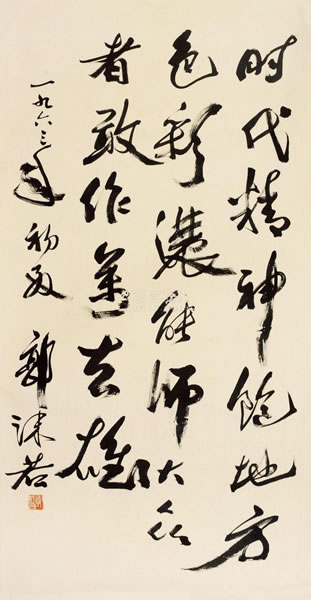 时代精神饱地方
色彩濃能师大众
者敢作萬夫雄
一九六三年初夏
郭沫若